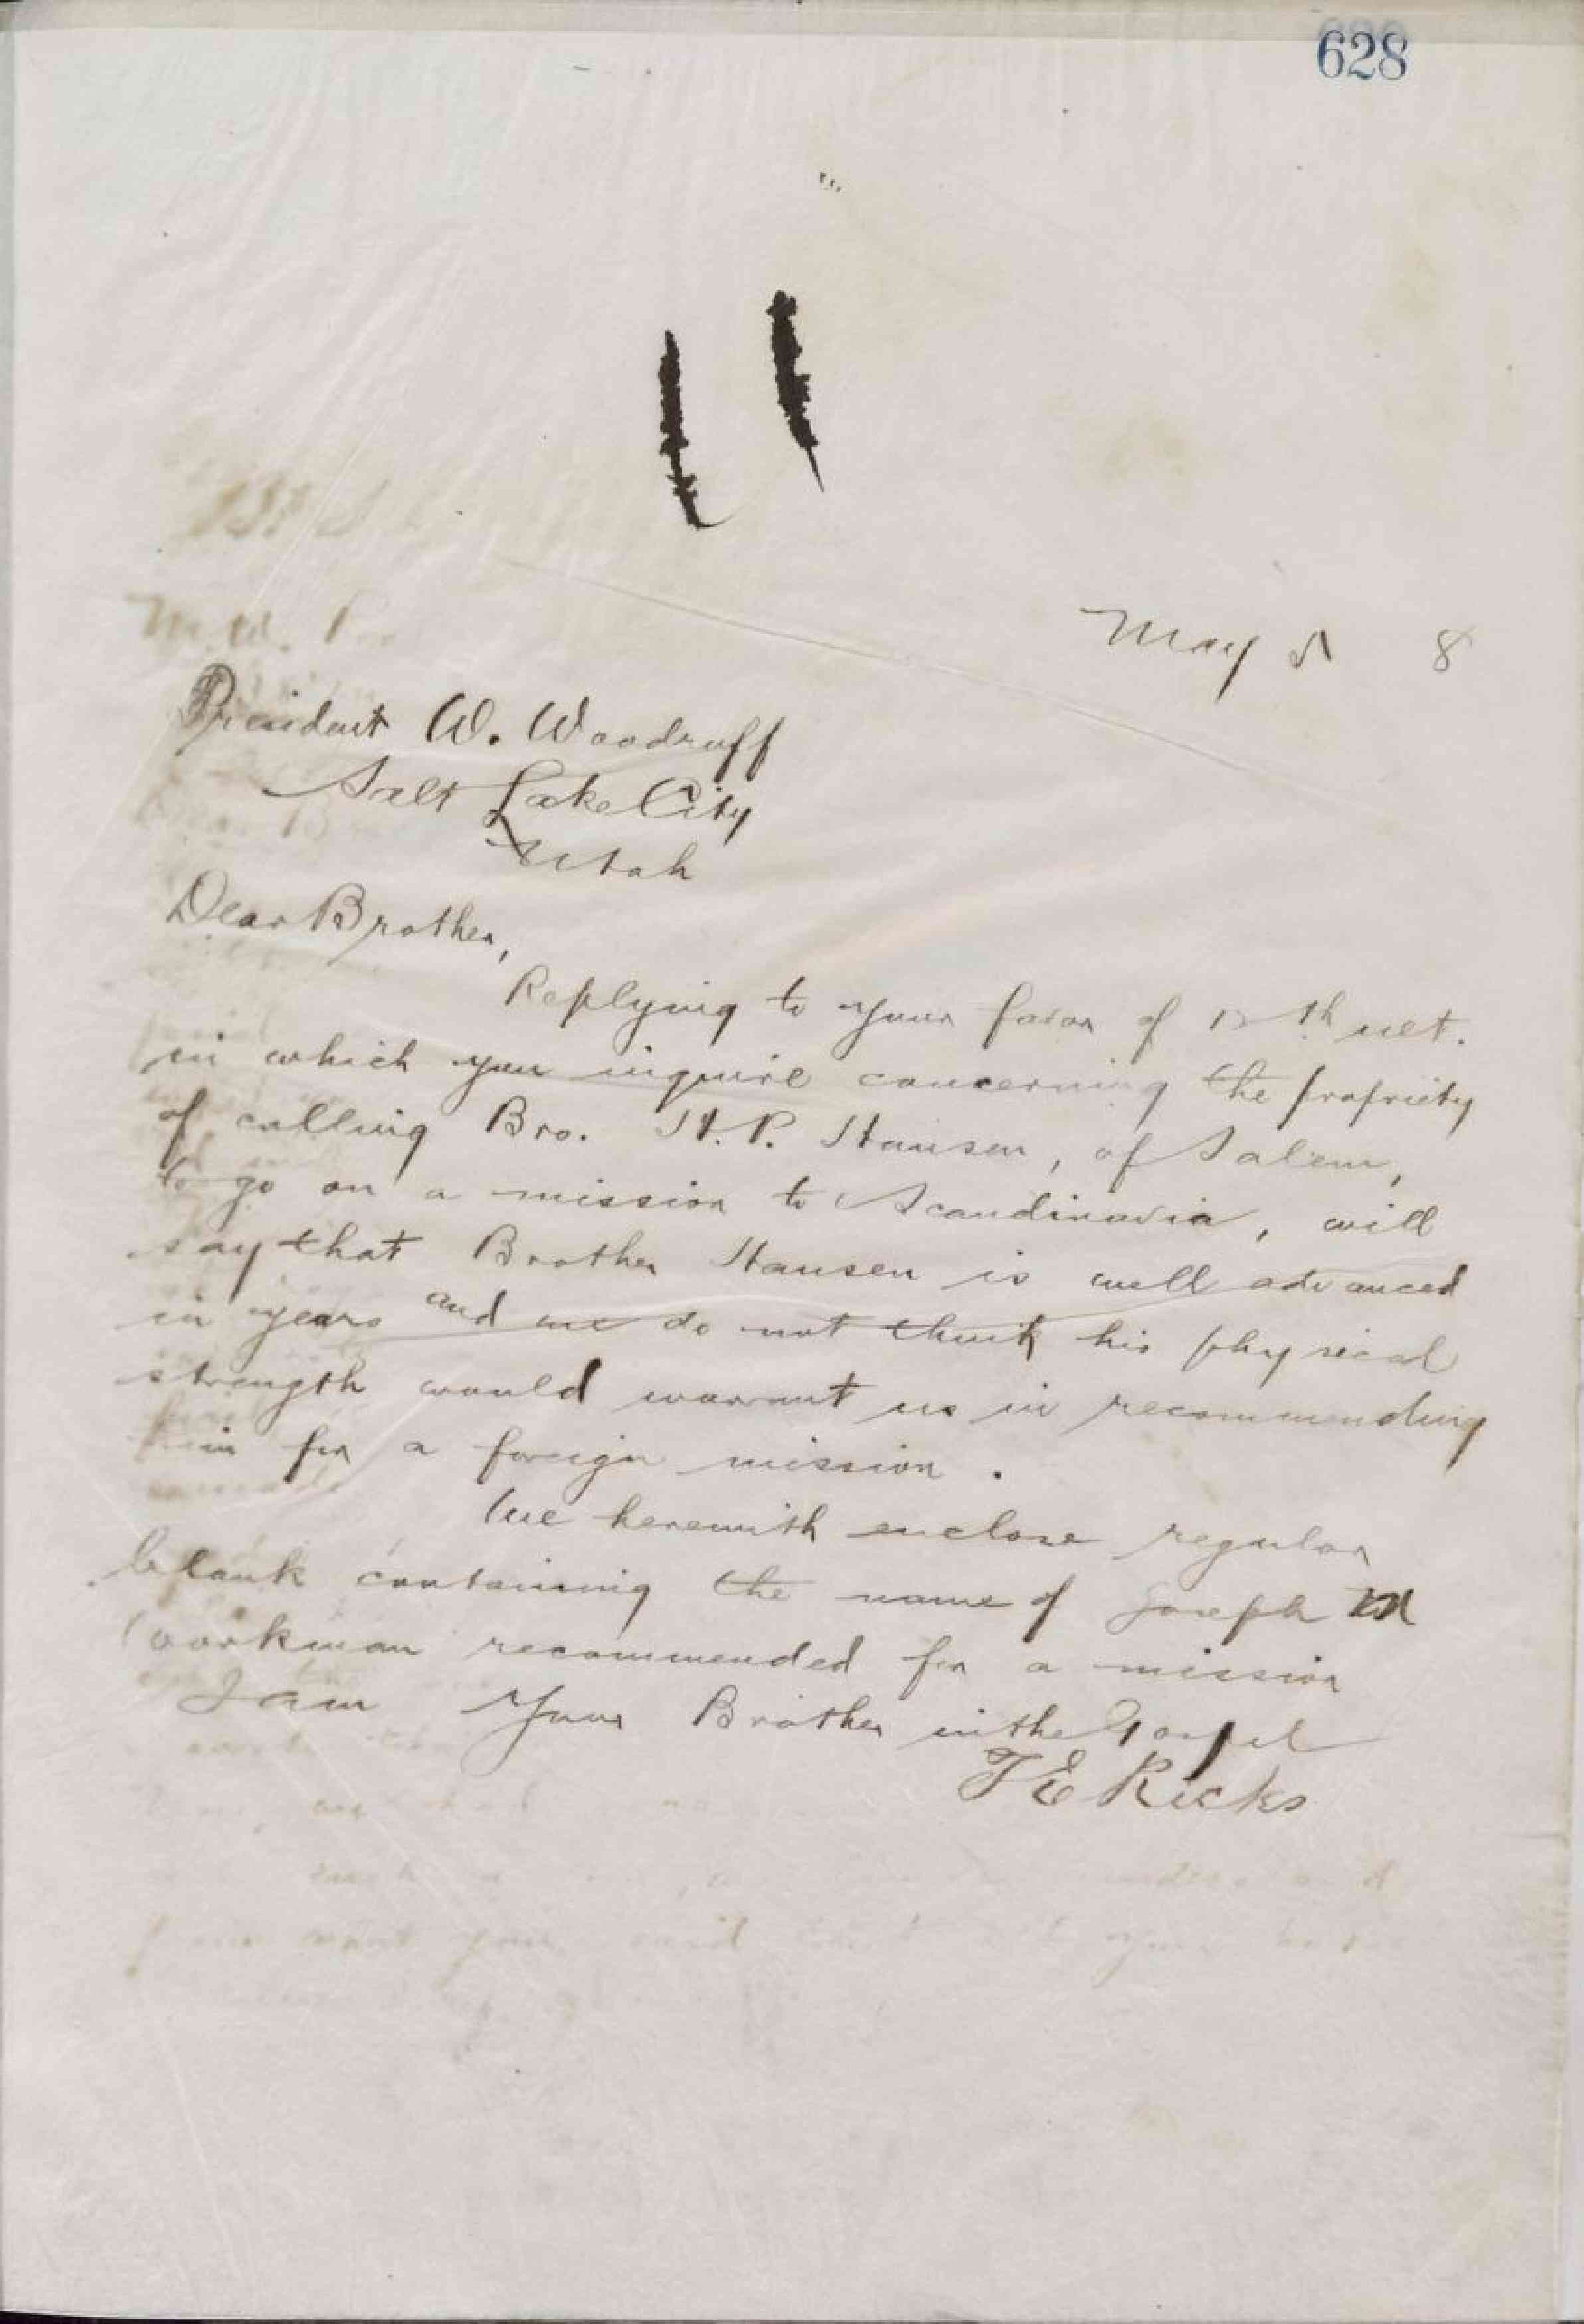 628
May 5 8
President W. Woodruff
Salt Lake City
Utah
Dear Brother,
Replying to your favor of th ult.
in which you inquire concerning the propriety
of calling Bro. H. P. Hansen, of Salem,
to go on a mission to Scandinavia, will
say that Brother Hansen is well advanced
in years and we do not think his physical
strength would warrant us in recommending
him for a foreign mission.
We herewith enclose regular
blank containing the name of Joseph
Workman recommended for a mission
I am Your Brother in the Gospel
T E Ricks